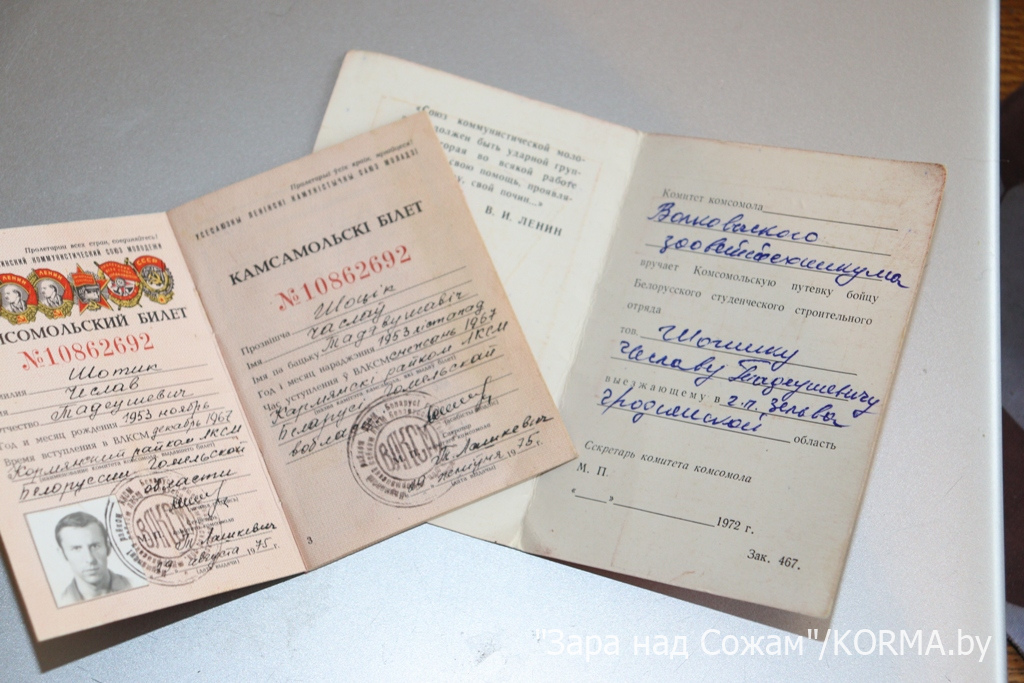 Пролетарии всех стран, соединяйтесь!
ИНСКИЙ КОММУНИСТИЧЕСКИЙ СОЮЗ МОЛОДЕЖИ
ЛЕНИН
ЛЕНИН
СССР
МСОМОЛЬСКИЙ БИЛЕТ
№10862692
милия Шотик
Чеслав
чество Тадеушевич
Год и месяц рождения 1953 ноябрь
Время вступления в ВЛКСМ декабрь 1967
Кормянский райком ЛКСМ
Белоруссии Гомельской
области
Т. Лашкевич
19 августа 1975 г.
ВЛКСМ
Пролетарыі ўсіх краін, яднайцеся!
УСЕСАЮЗНЫ ЛЕНІНСКІ КАМУНІСТЫЧНЫ САЮЗ МОЛАДЗІ
КАМСАМОЛЬСКІ БІЛЕТ
№10862692
Прозвішча Шоцік
Імя Часлаў
Імя па бацьку Тадэвушавіч
Год і месяц нараджэння 1953 лістапад
Час уступлення ў ВЛКСМ снежань 1967
Кармянскі райком ЛКСМ
Беларусі Гомельскай
вобл
Сакратар
Т. Лашкевич
19 жніўня 1975 г.
ВЛКСМ
3
«Союз коммунистической моло-
должен быть ударной груп-
торая во всякой работе
свою помощь, проявля-
у, свой почин...»
В. И. ЛЕНИН
Комитет комсомола
Волковыского
зооветтехникума
вручает Комсомольскую путевку бойцу
Белорусского студенческого строительного
отряда
тов. Шотику
Чеславу Тадеушевичу
выезжающему в г.п. Зельва
Гродненской область
Секретарь комитета комсомола
М. П.
«___»____________1972 г.
Зак. 467.
"Зара над Сожам"/KORMA.by